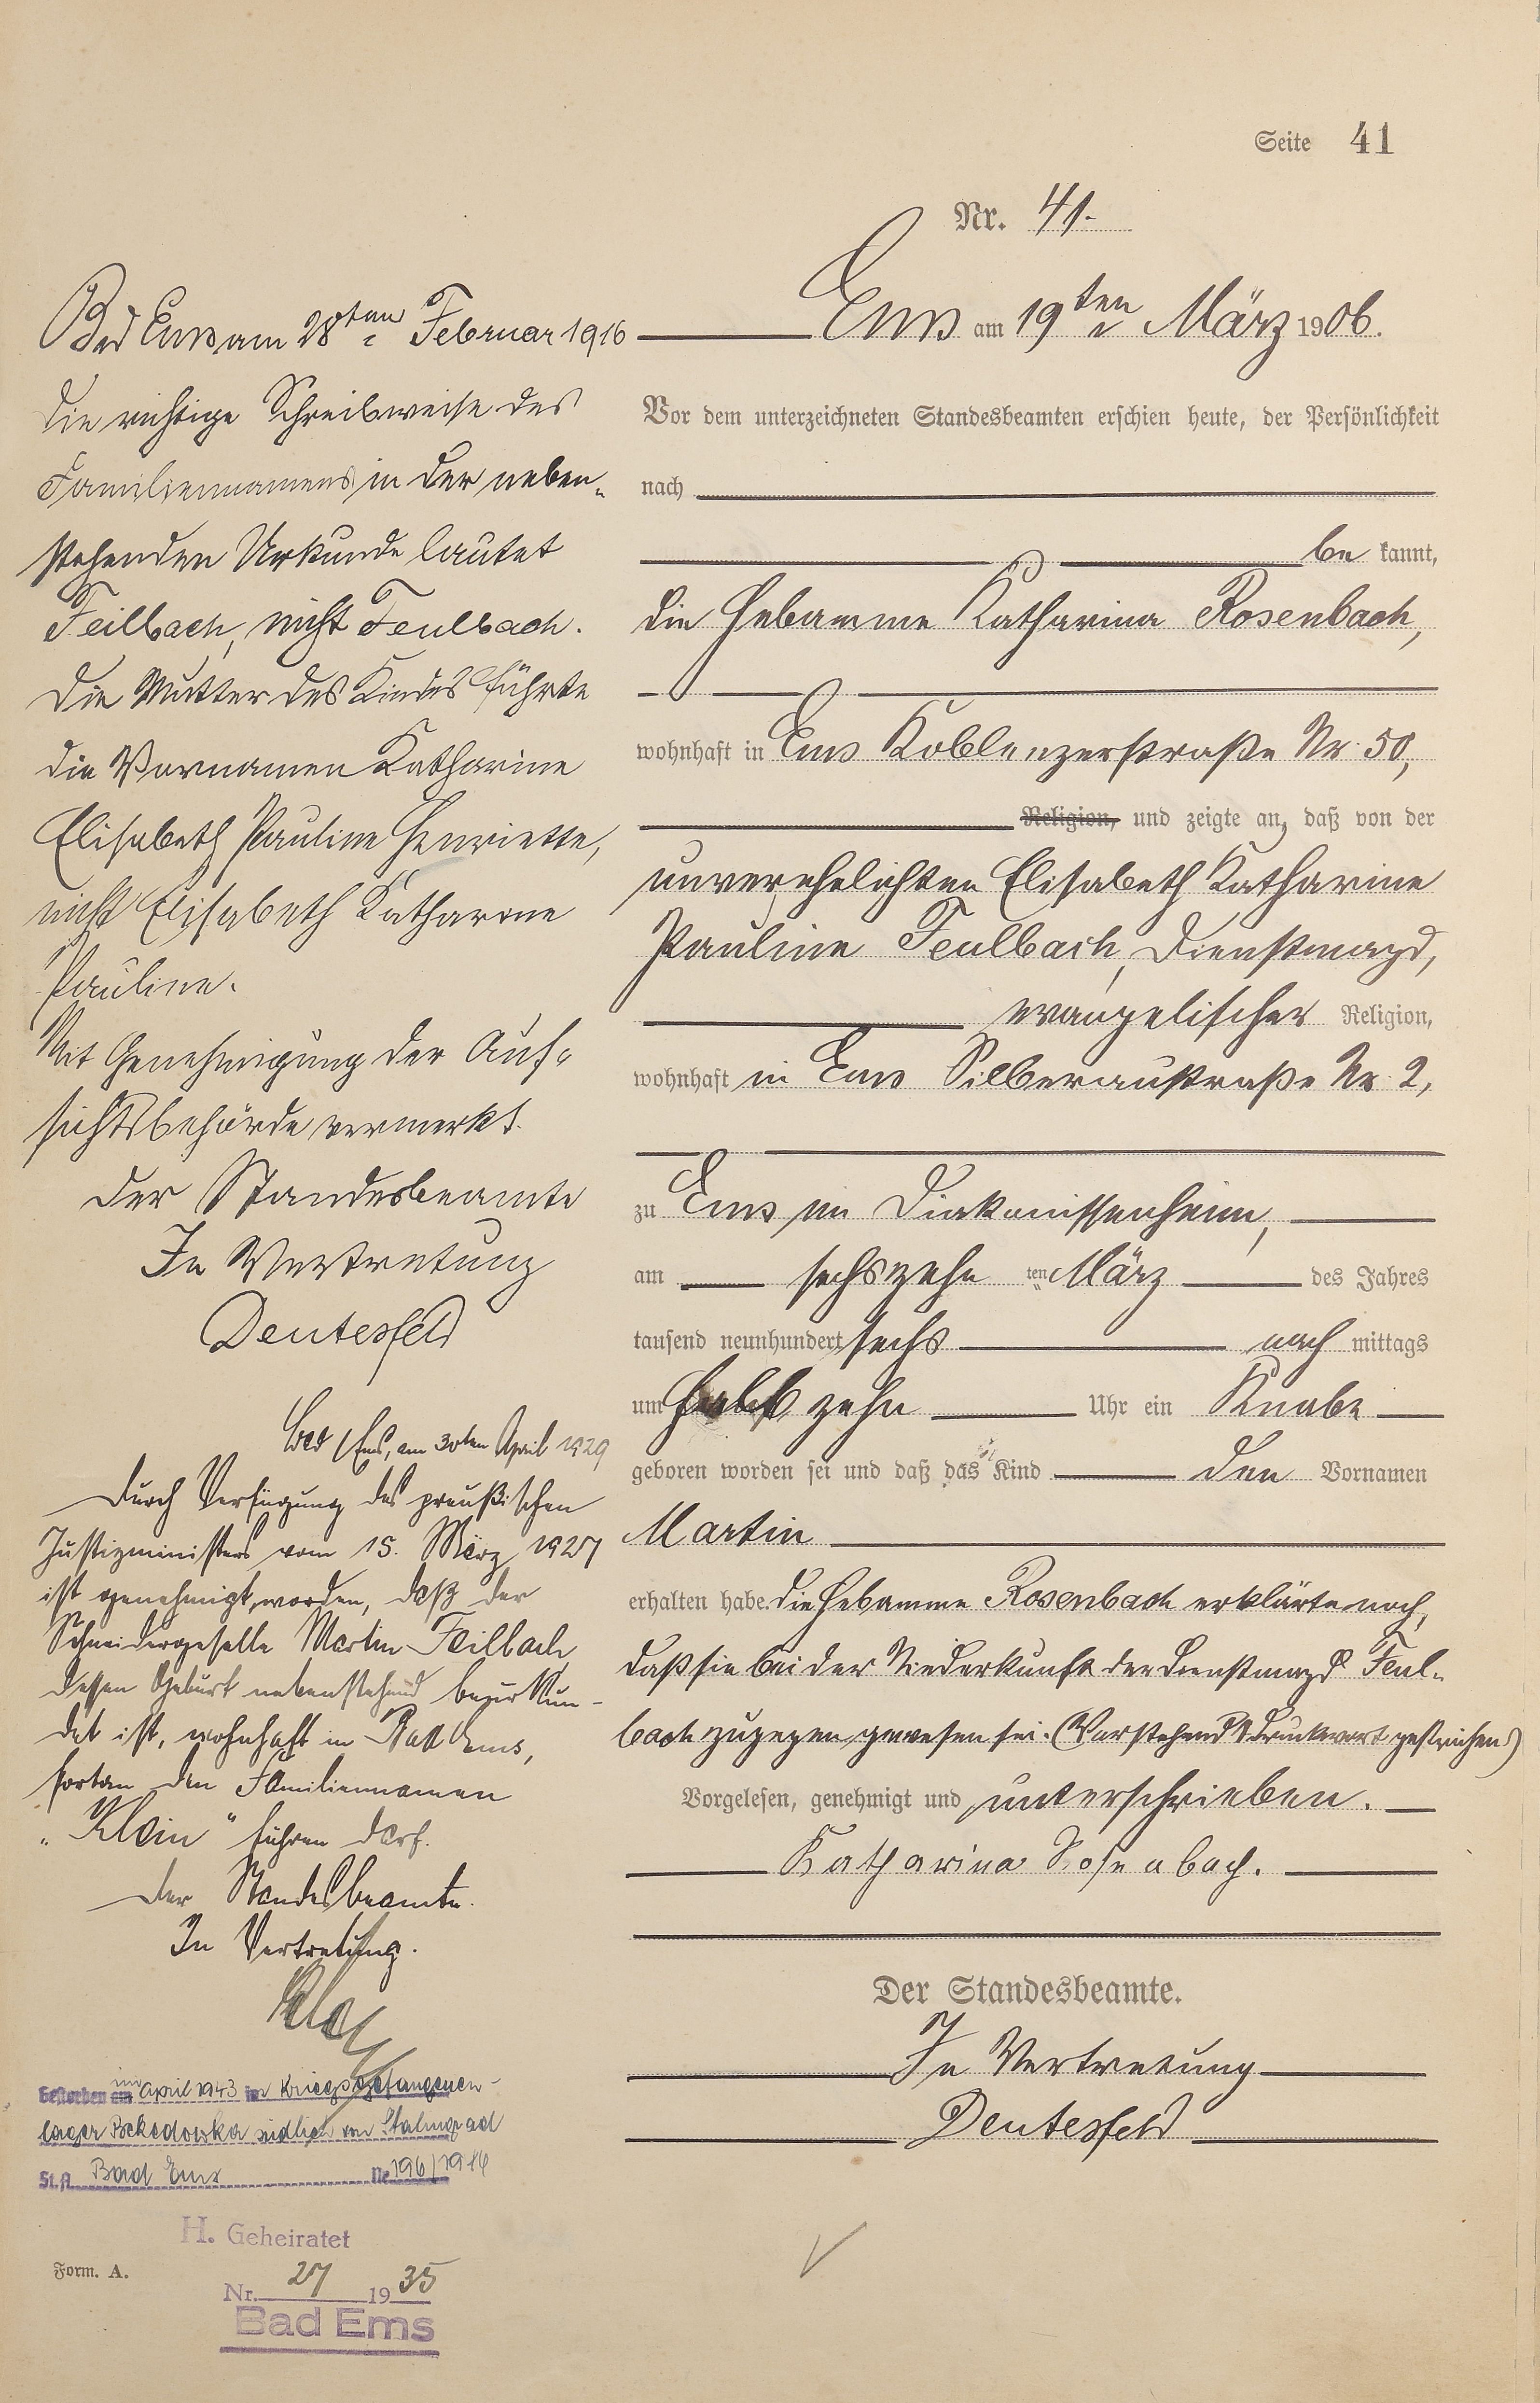 Seite 41
Nr. 41.
Ems am 19ten März 1906.
Vor dem unterzeichneten Standesbeamten erschien heute, der Persönlichkeit
nach
be kannt,
die Hebamme Katharina Rosenbach,
wohnhaft in Ems Koblenzerstraße Nr. 50,
Religion, und zeigte an, daß von der
unverehelichten Elisabeth Katharine
Pauline Feulbach, Dienstmagd,
evangelischer Religion,
wohnhaft in Ems Silberaustraße Nr. 2,
zu Ems im Diakonissenheim,
am sechszehn ten März des Jahres
tausend neunhundert sechs nach mittags
um halb zehn Uhr ein Knabe
geboren worden sei und daß das Kind den Vornamen
Martin
erhalten habe. Die Hebamme Rosenbach erklärte noch,
daß sie bei der Niederkunft der Dienstmagd Feul-
bach zugegen gewesen sei. (Vorstehend 1 Druckwort gestrichen)
Vorgelesen, genehmigt und unterschrieben.
Katharina Rosenbach.
Der Standesbeamte.
In Vertretung
Deutesfeld
Bad Ems am 28ten Februar 1916
Die richtige Schreibweise des
Familiennamens in der neben-
stehenden Urkunde lautet
Feilbach, nicht Feulbach.
Die Mutter des Kindes führte
die Vornamen Katharine
Elisabeth Pauline Henriette,
nicht Elisabeth Katharine
Pauline.
Mit Genehmigung der Auf-
sichtsbehörde vermerkt.
Der Standesbeamte
In Vertretung
Deutesfeld
Bad Ems, am 30ten April 1929
Durch Verfügung des preußischen
Justizministers vom 15. März 1927
ist genehmigt worden, daß der
Schneidergeselle Martin Feilbach
dessen Geburt nebenstehend beurkun-
det ist, wohnhaft in Bad Ems,
fortan den Familiennamen
"Klein" führen darf.
Der Standesbeamte.
In Vertretung.
Gestorben im April 1943 im Kriegsgefangenen-
lager Bekedowka südlich von Stalingrad
St.A. Bad Ems Nr.
H. Geheiratet
Nr. 27 1935
Bad Ems
Form. A.